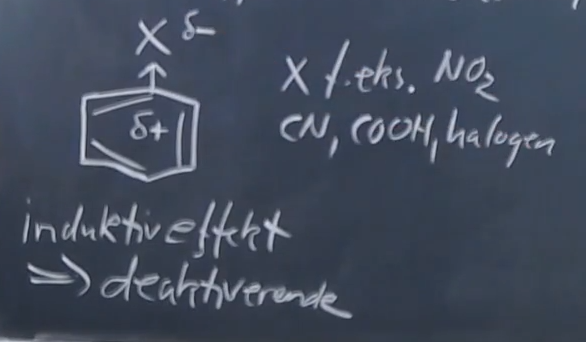 X δ-
δ+
X f.eks. NO₂
CN, COOH, halogen
induktiv effekt
=> deaktiverende